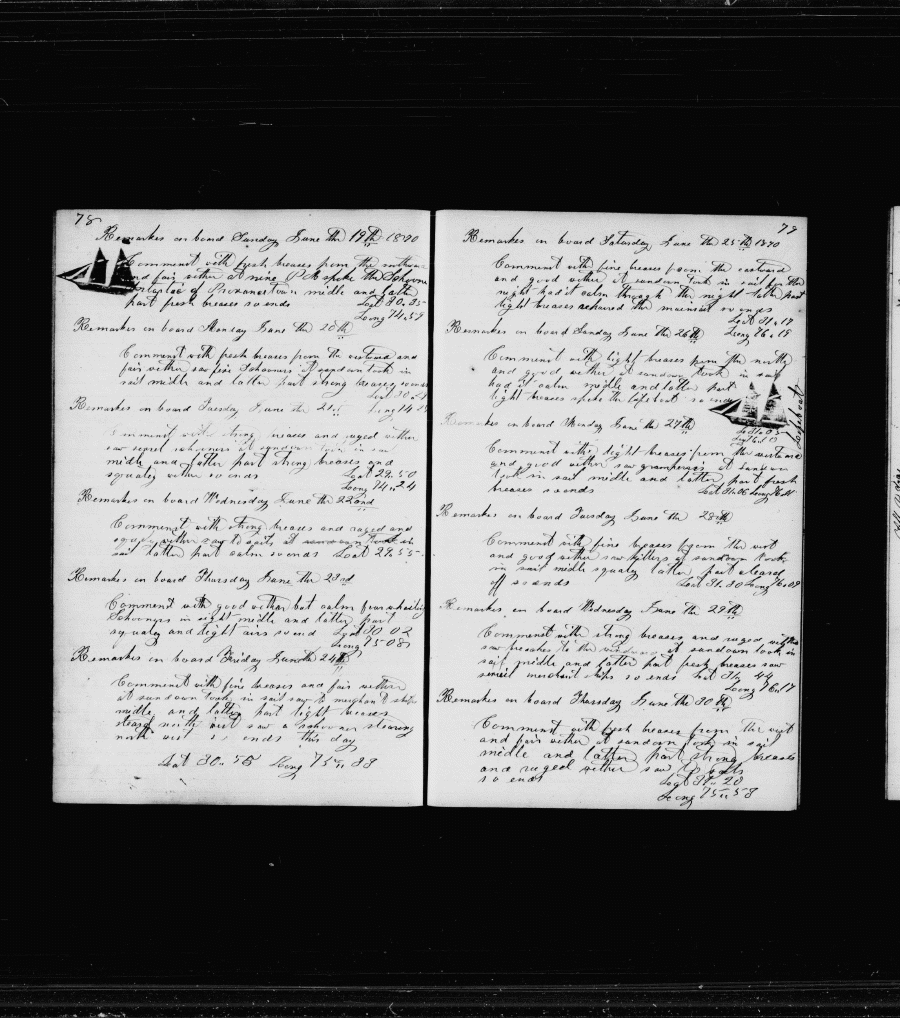 78
Remarkes on board Sunday June the 19th 1870
Comment with fresh breases from the
and fair wither at nine P M spoke the Schooner
of Provancetown midle and latter
part fresh breases so ends Lat 30..35
Long 74..59
Remarkes on board Monday June the 20th
Comment with fresh breases from the westward and
fair wither saw five Schooners at sandown took in
sail midle and latter part strong breases so ends
Lat 30
Remarkes on board Tuesday June the 21 Long 74
Comment with strong breases and ruged wither
saw schooners at sandown took in sail
midle and latter part strong breases and
squaly wither so ends Lat 29..50
Long 74..24
Remarkes on board Wednesday June the 22nd
Comment with strong breases and ruged and
squaly wither at
sail latter part calm so ends Lat 29..55
Remarkes on board Thursday June the 23rd
Comment with good wither but calm four whailing
Schooners in sight midle and latter part
squaly and light airs so end Lat 30 02
Long 75 08
Remarkes on board Friday June the 24th
Comment with fine breases and fair wither
at sandown took in sail saw 2 ships
midle and latter part light breases
steard north west saw a schooner stearing
north west so ends this day
Lat 30..55 Long 75..33
79
Remarkes on board Saturday June the 25th 1870
Comment with fine breases from the eastward
and good wither at sandown took in sail for the
night had it calm through the night latter part
light breases repaired the mainsail so ends
Lat 31..17
Remarkes on board Sunday June the 26th Long 76..19
Comment with light breases from the north
and good wither at sandown took in sail
had it calm midle and latter part
light breases spoke the lifeboat so ends
Lifeboat
Remarkes on board Monday June the 27th
Comment with light breases from the westward
and good wither saw grampuses at sandown
took in sail midle and latter part fresh
breases so ends Lat 31..06 Long 76
Remarkes on board Tuesday June the 28th
Comment with fine breases from the west
and good wither saw killers at sandown took
in sail midle squaly latter part cleared
off so ends Lat 31..30 Long 76..09
Remarkes on board Wednesday June the 29th
Comment with strong breases and ruged wither
saw breaches to the windward at sandown took in
sail midle and latter part fresh breases saw
merchant ships so ends Lat 31.. 44
Long 76..17
Remarkes on board Thursday June the 30th
Comment with fresh breases from the west
and fair wither at sandown took in sail
midle and latter part strong breases
and ruged wither saw
so ends Lat 31..20
Long 75..58